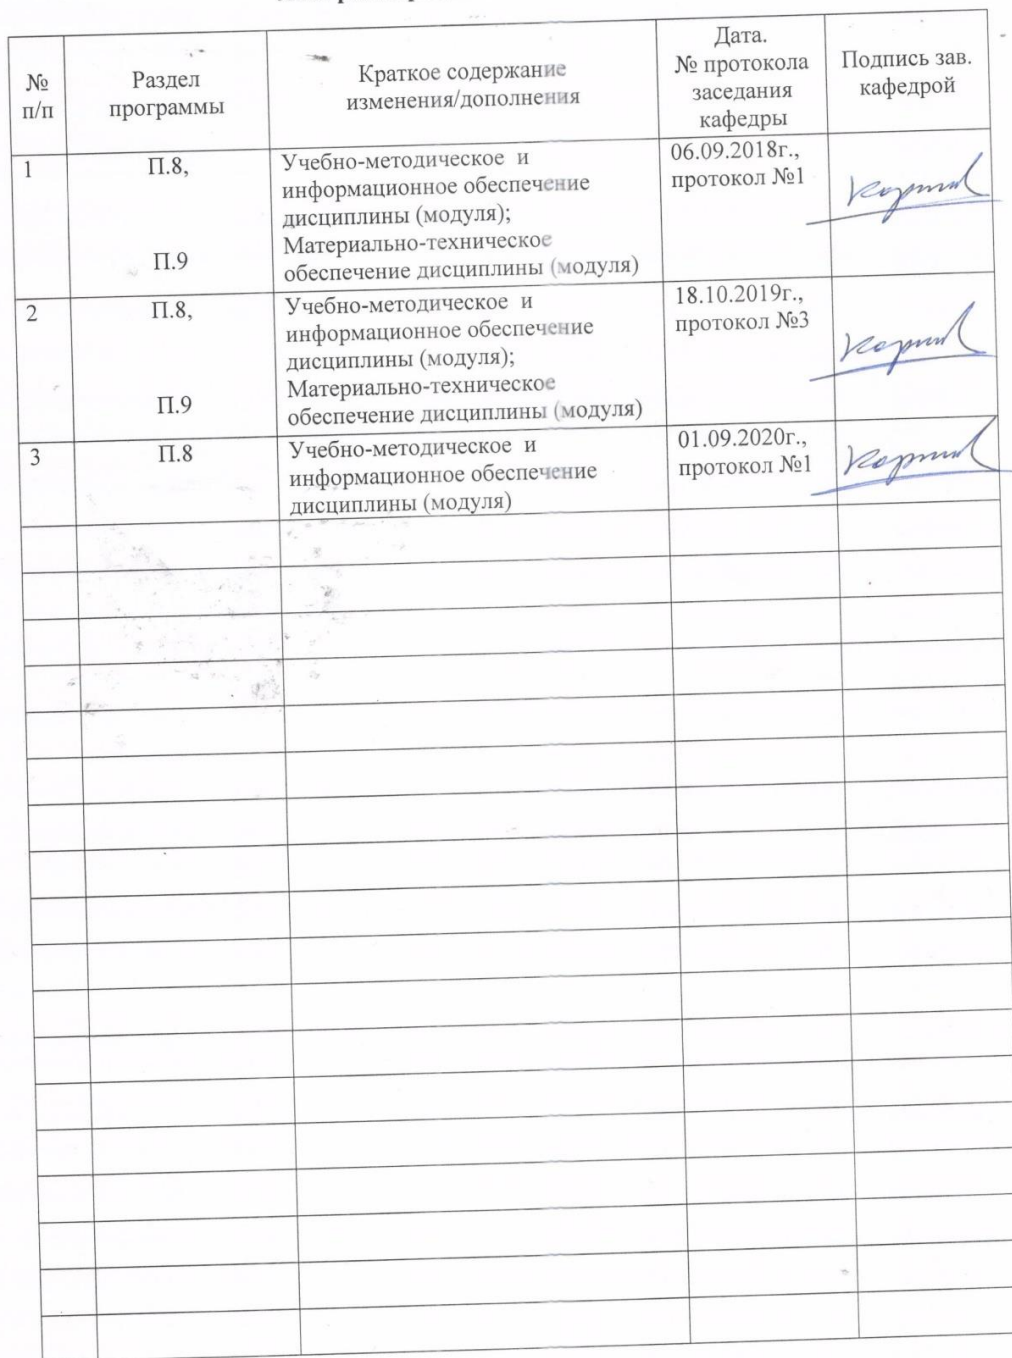 №
п/п
Раздел
программы
Краткое содержание
изменения/дополнения
Дата.
№ протокола
заседания
кафедры
Подпись зав.
кафедрой
1
П.8,
П.9
Учебно-методическое и
информационное обеспечение
дисциплины (модуля);
Материально-техническое
обеспечение дисциплины (модуля)
06.09.2018г.,
протокол №1
2
П.8,
П.9
Учебно-методическое и
информационное обеспечение
дисциплины (модуля);
Материально-техническое
обеспечение дисциплины (модуля)
18.10.2019г.,
протокол №3
3
П.8
Учебно-методическое и
информационное обеспечение
дисциплины (модуля)
01.09.2020г.,
протокол №1